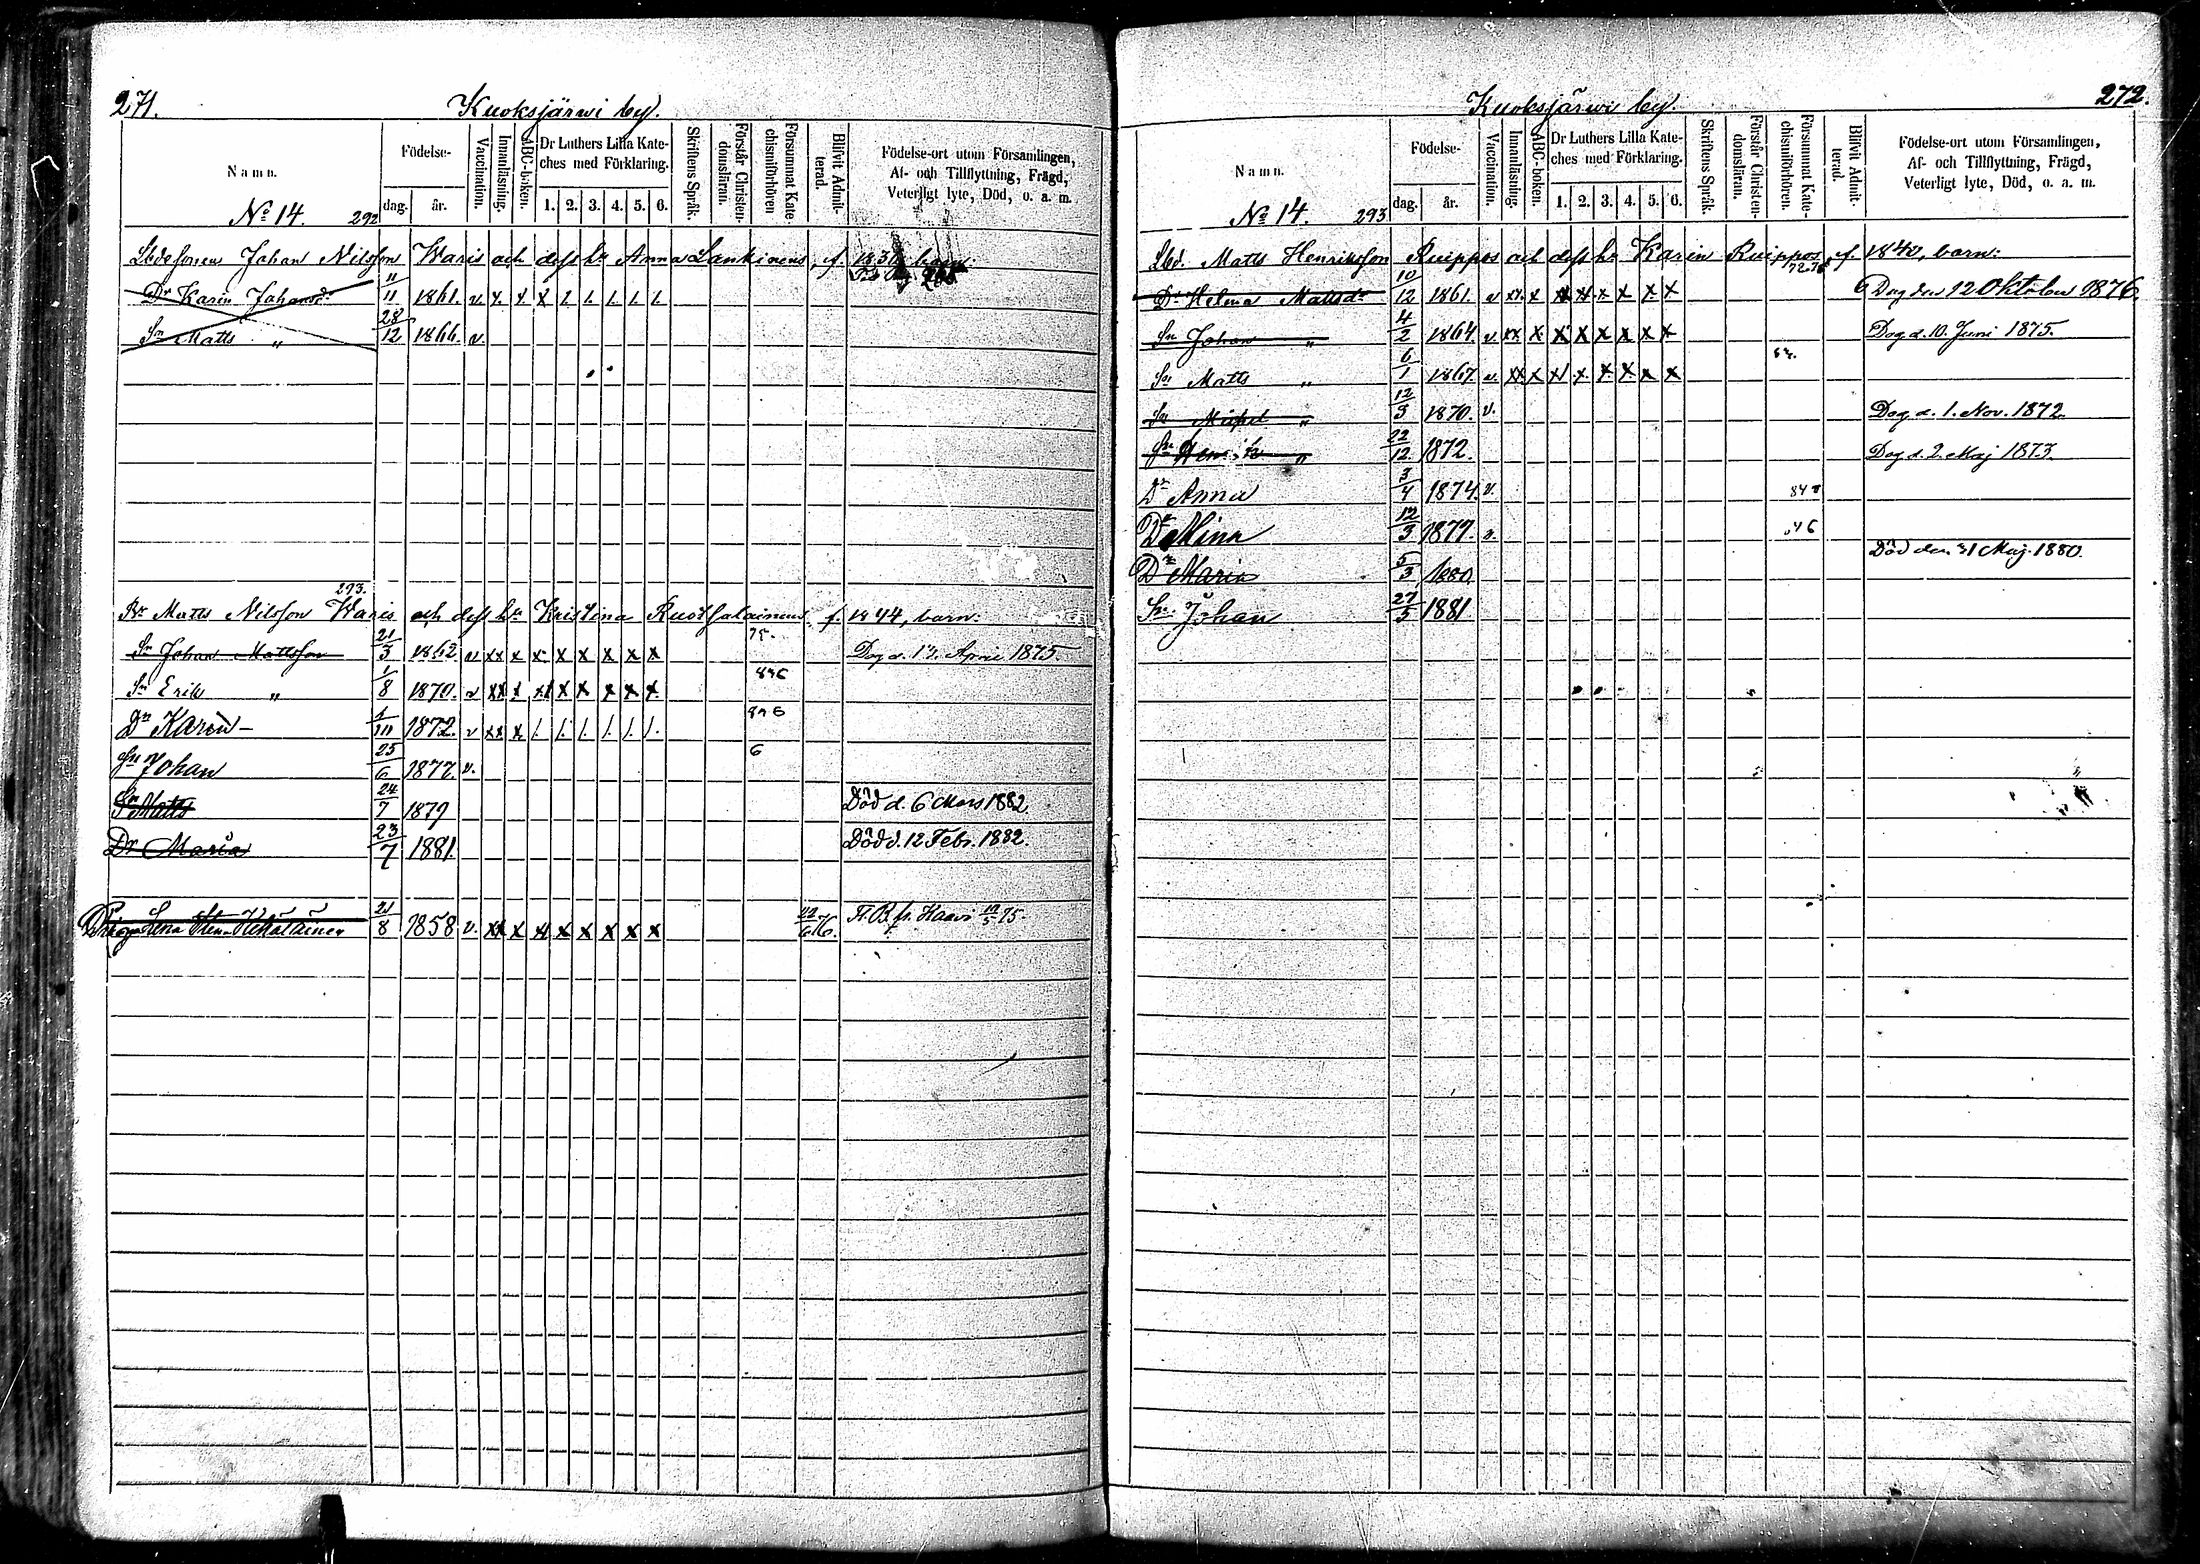 271.
Kuoksjärwi by.
Namn.
Födelse-
dag. år.
Vaccination.
Innanläsning.
ABC-boken.
Dr Luthers Lilla Kate-
ches med Förklaring.
1. 2. 3. 4. 5. 6.
Skriftens Språk.
Förstår Christen-
domsläran.
Försummat Kate-
chismiförhören
Blifvit Admit-
terad.
Födelse-ort utom Församlingen,
Af- och Tillflyttning, Frägd,
Veterligt lyte, Död, o. a. m.
No 14. 292
Johan Nilsson Waris och dess hu Anna Lankinens, f. barn:
Dr Karin Johansdr 11/11 1861. v. x. x x 1. 1. 1. 1. 1.
Sn Matts " 28/12 1866. v.
293.
Br Matts Nilsson Waris och dess hu Kristina f. 1844, barn:
Sn Johan Mattsson 21/3 1862 v xx x x x x x x x 75. Dog d. April 1875.
Sn Erik " 1/8 1870. v xx x x1 x x x x x
Dr Karin 1872. v xx x 1. 1. 1. 1. 1. 1.
Sn Johan 25/6 1877. v. 6
Sn Matts 24/7 1879 Död d. 6 Mars 1882.
Dr Maria 23/7 1881. Död d. 12 Febr. 1882.
Lena 21/8 1858 v. xx x x x x x x x fr.
272.
Kuoksjärwi by.
Namn.
Födelse-
dag. år.
Vaccination.
Innanläsning.
ABC-boken.
Dr Luthers Lilla Kate-
ches med Förklaring.
1. 2. 3. 4. 5. 6.
Skriftens Språk.
Förstår Christen-
domsläran.
Försummat Kate-
chismiförhören.
Blifvit Admit-
terad.
Födelse-ort utom Församlingen,
Af- och Tillflyttning, Frägd,
Veterligt lyte, Död, o. a. m.
No 14. 293
Matts Henriksson Ruippos och dess hu Karin Ruippos, f. 1840, barn:
Dr Helena Mattsdr 10/12 1861. v xx. x x x x x x x Dog den 12 Oktober 1876.
Sn Johan " 4/2 1864. v xx x. x x x x x x Dog d. 10. Juni 1875.
Sn Matts " 6/1 1867. v. xx x x1 x. x x x x
Sn Mickel " 12/3 1870. v. Dog d. 1. Nov. 1872.
Sn Henrik " 22/12 1872. Dog d. 2. Maj 1873.
Dr Anna 3/4 1874. v.
Dr Mina 12/3 1877. v.
Dr Maria 5/3 1880 Död den 31 Maj. 1880.
Sn Johan 27/5 1881